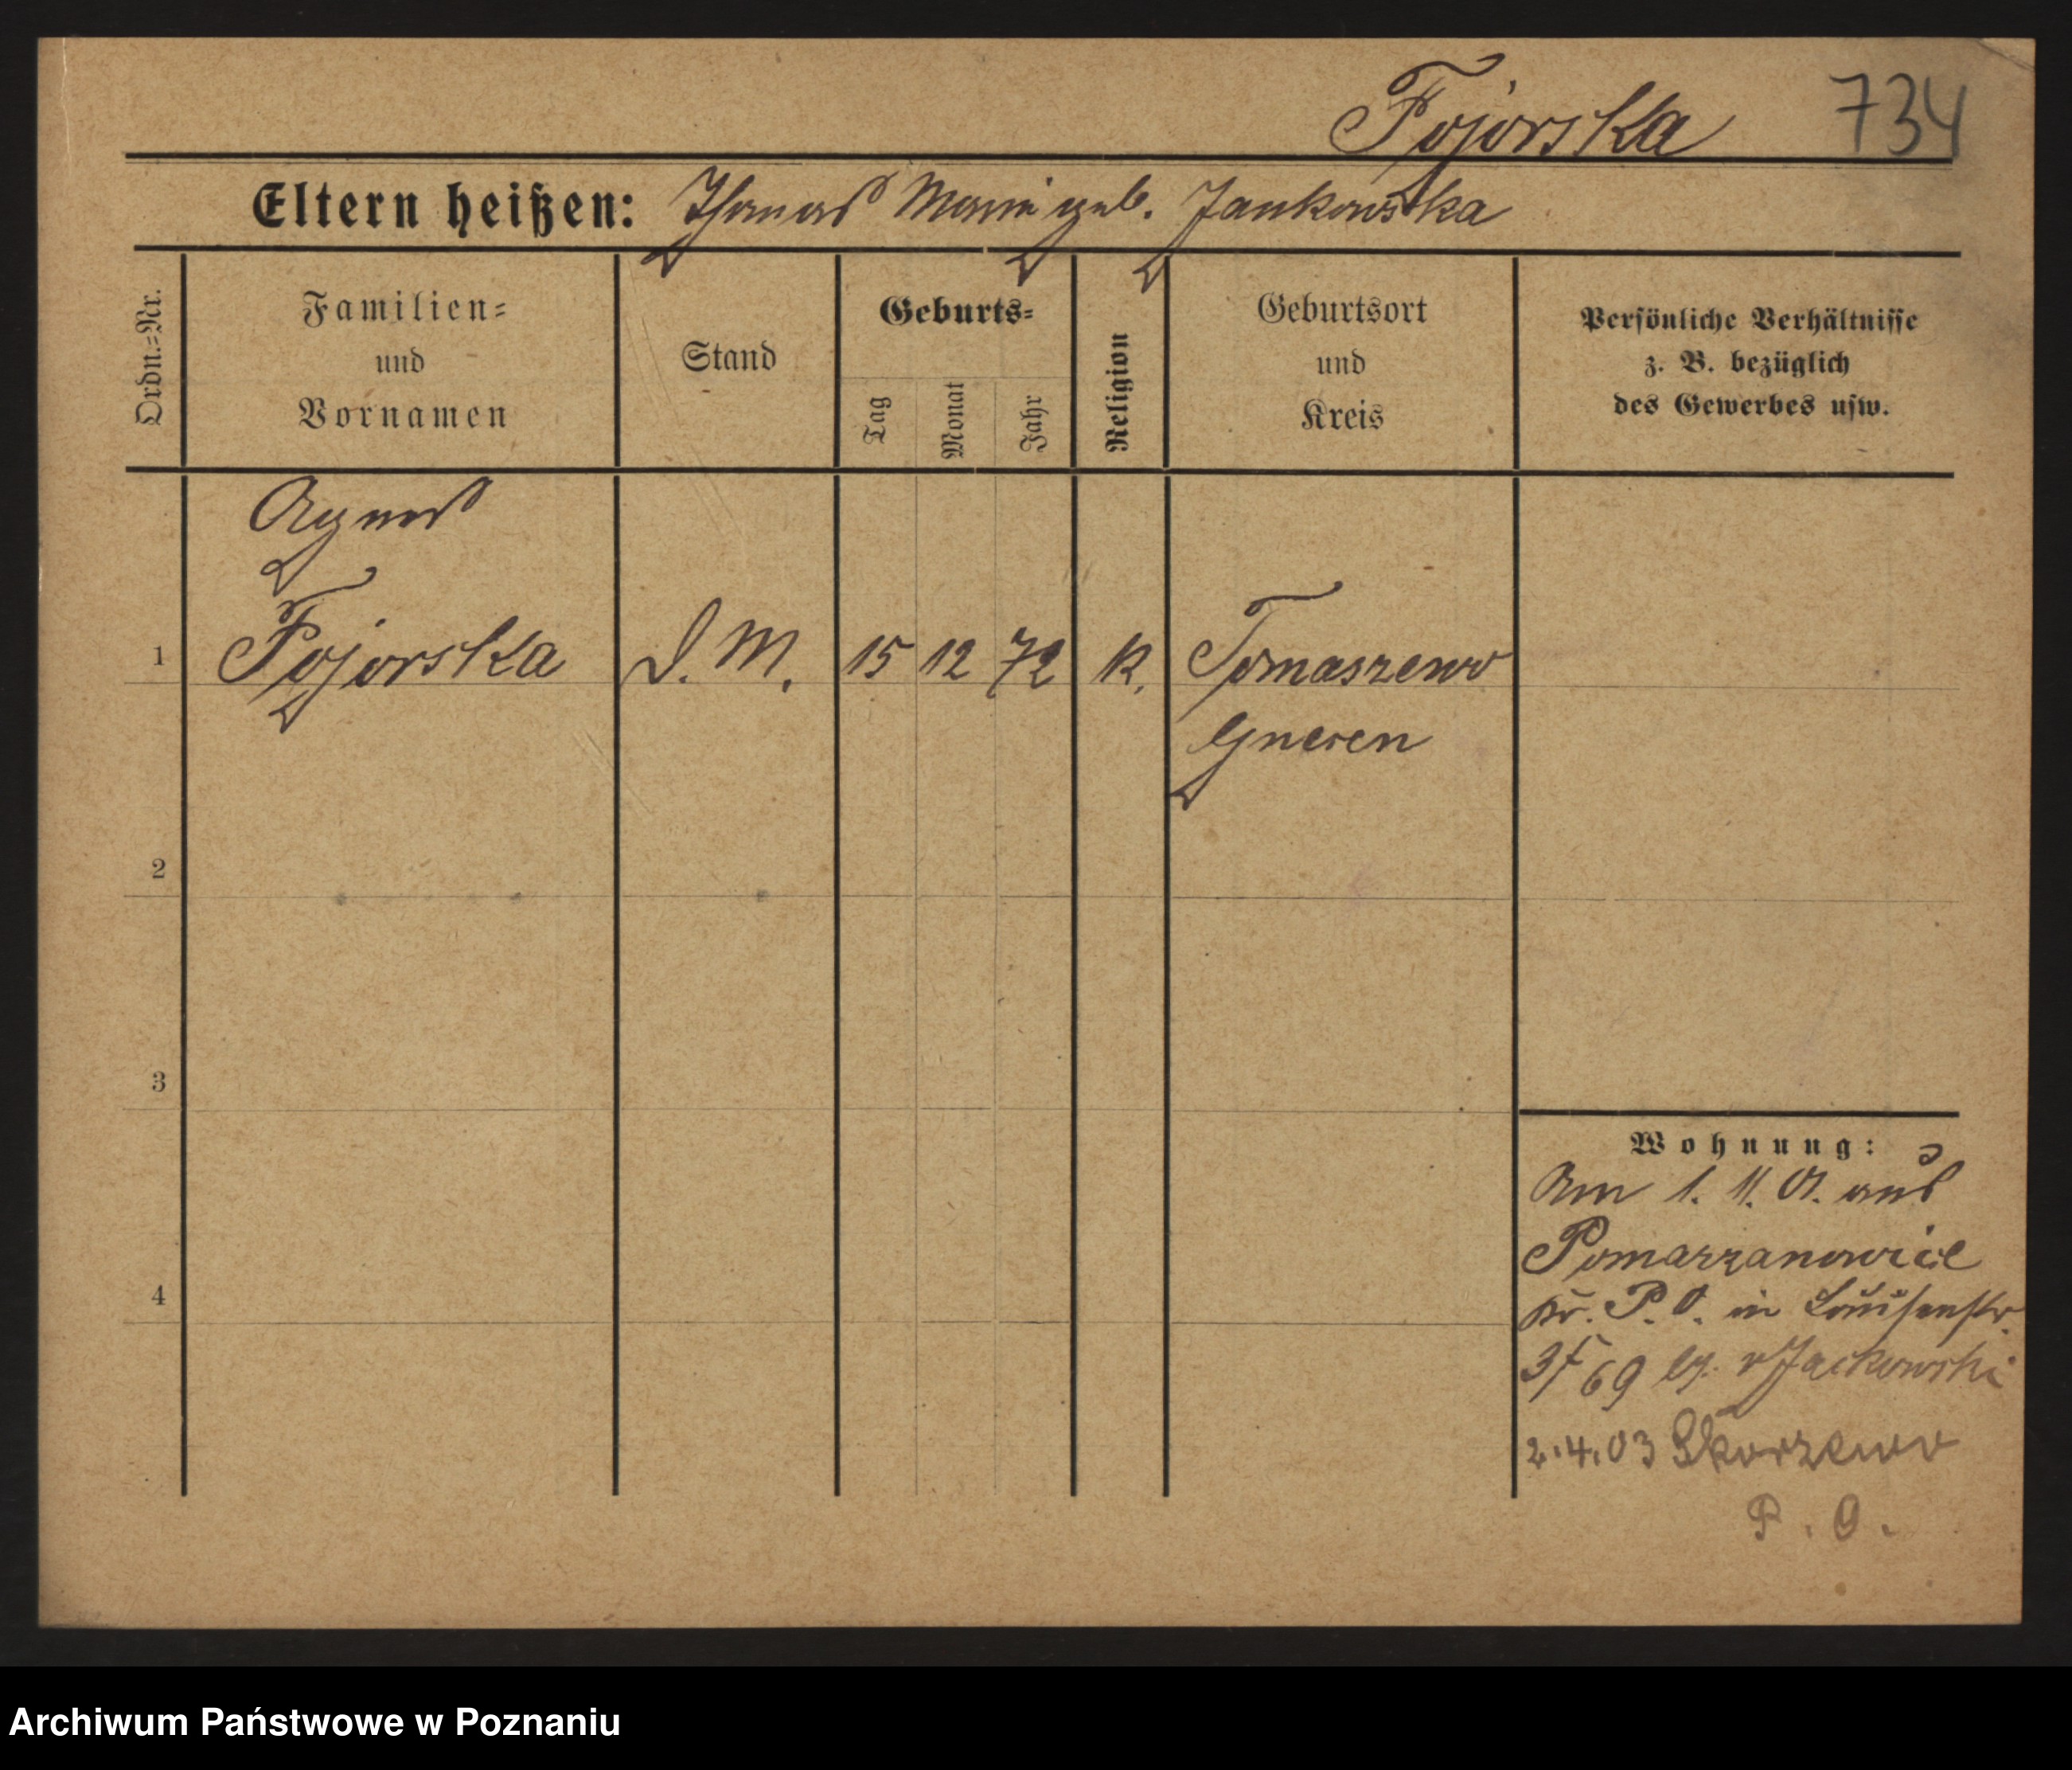 Fojorska 734
Eltern heißen: Thomas Marie geb. Jankowska
Ordn.=Nr.
Familien=
und
Vornamen
Stand
Geburts=
Tag
Monat
Jahr
Religion
Geburtsort
und
Kreis
Persönliche Verhältnisse
z. B. bezüglich
des Gewerbes usw.
Agnes
1 Fojorska D. M. 15 12 72 K. Tomaszewo
Gnesen
2
3
4
Wohnung:
Am 1. 11. 01. aus
Pomarzanowice
Kr. P. O. in Louisenstr.
3f 69 v Jackowski
2.4.03 Skorzewo
P. O.
Archiwum Państwowe w Poznaniu